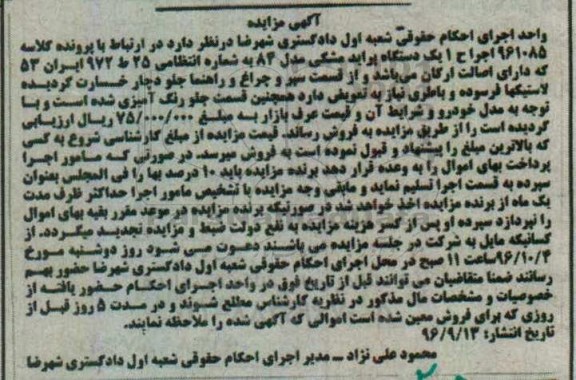 آگهی مزایده
واحد اجرای احکام حقوقی شعبه اول دادگستری شهرضا درنظر دارد در ارتباط با پرونده کلاسه
۹۶۱۰۸۵ اجرا ح ۱ یک دستگاه پراید مشکی مدل ۸۴ به شماره انتظامی ۲۵ ط ۹۷۲ ایران ۵۳
که دارای اصالت ارکان می‌باشد و از قسمت سپر و چراغ و راهنما جلو دچار خسارت گردیده
لاستیکها فرسوده و باطری نیاز به تعویض دارد همچنین قسمت جلو رنگ آمیزی شده است و با
توجه به مدل خودرو و شرایط آن و قیمت عرف بازار به مبلغ ۷۵/۰۰۰/۰۰۰ ریال ارزیابی
گردیده است را از طریق مزایده به فروش رساند. قیمت مزایده از مبلغ کارشناسی شروع به کسی
که بالاترین مبلغ را پیشنهاد و قبول نموده است به فروش میرسد. در صورتی که مامور اجرا
پرداخت بهای اموال را به وعده قرار دهد برنده مزایده باید ۱۰ درصد بها را فی المجلس بعنوان
سپرده به قسمت اجرا تسلیم نماید و مابقی وجه مزایده با تشخیص مامور اجرا حداکثر ظرف مدت
یک ماه از برنده مزایده اخذ خواهد شد در صورتیکه برنده مزایده در موعد مقرر بقیه بهای اموال
را نپردازد سپرده او پس از کسر هزینه مزایده به نفع دولت ضبط و مزایده تجدید میگردد. از
کسانیکه مایل به شرکت در جلسه مزایده می باشند دعوت می شود روز دوشنبه مورخ
۹۶/۱۰/۴ ساعت ۱۱ صبح در محل اجرای احکام حقوقی شعبه اول دادگستری شهرضا حضور بهم
رسانند ضمنا متقاضیان می توانند قبل از تاریخ فوق در واحد اجرای احکام حضور یافته از
خصوصیات و مشخصات مال مذکور در نظریه کارشناس مطلع شوند و در مدت ۵ روز قبل از
روزی که برای فروش معین شده است اموالی که آگهی شده را ملاحظه نمایند.
تاریخ انتشار: ۹۶/۹/۱۳
محمود علی نژاد ــ مدیر اجرای احکام حقوقی شعبه اول دادگستری شهرضا